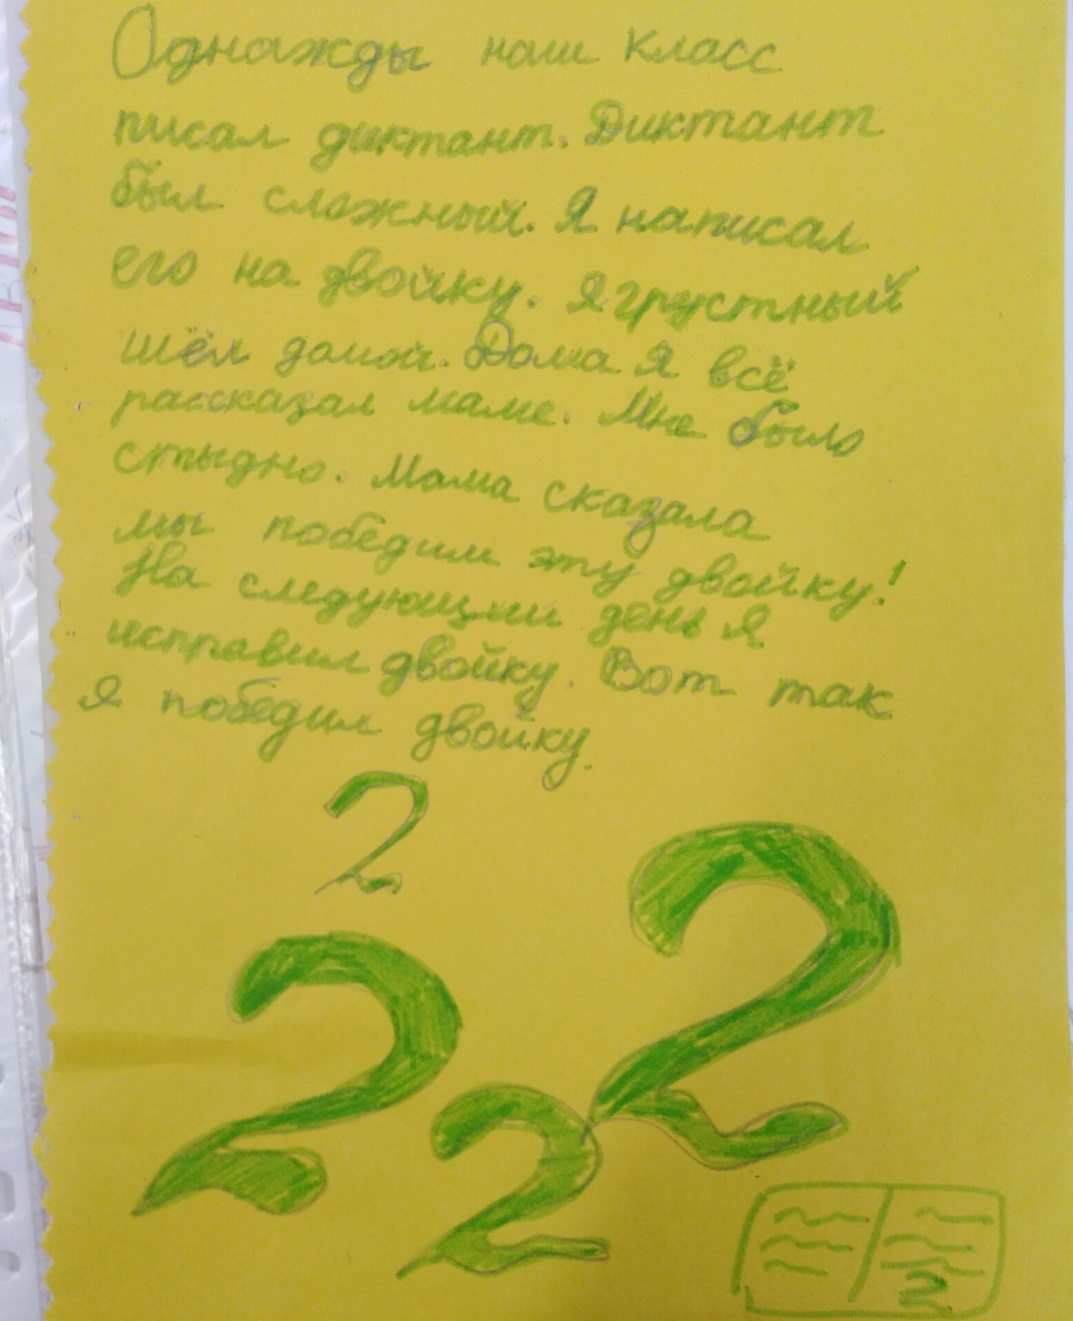 Однажды наш класс
писал диктант. Диктант
был сложный. Я написал
его на двойку. Я грустный
шёл домой. Дома я всё
рассказал маме. Мне было
стыдно. Мама сказала
мы победим эту двойку!
На следующий день я
исправил двойку. Вот так
я победил двойку.
2
2
2
2
2